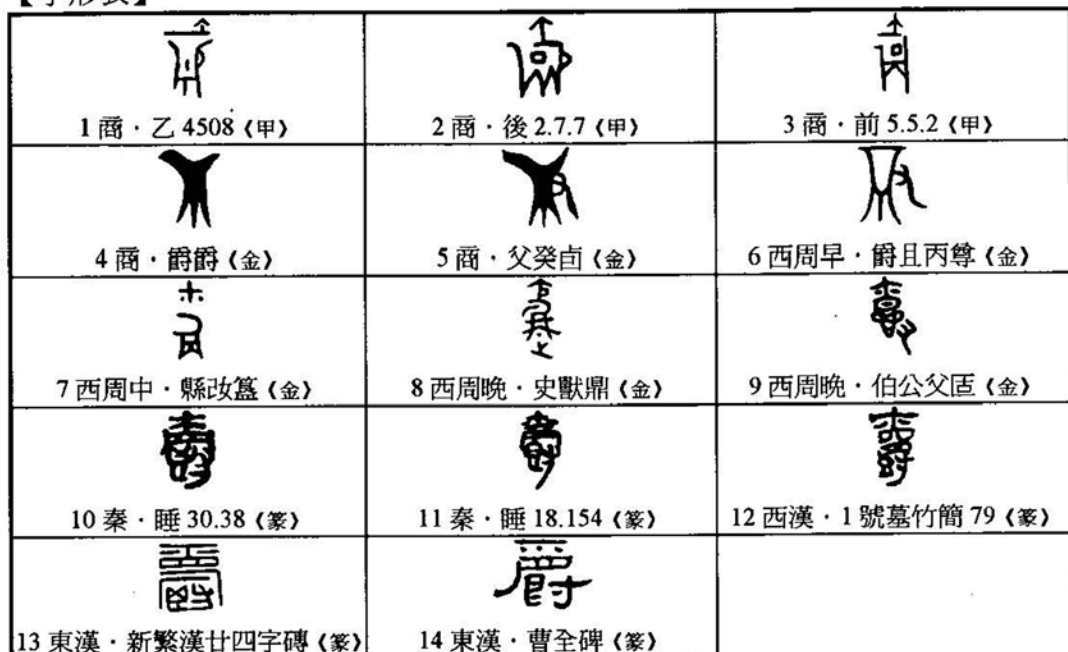 1 商・乙 4508《甲》
2 商・後 2.7.7《甲》
3 商・前 5.5.2《甲》
4 商・爵爵《金》
5 商・父癸卣《金》
6 西周早・爵且丙尊《金》
7 西周中・縣改簋《金》
8 西周晚・史獸鼎《金》
9 西周晚・伯公父𠤳《金》
10 秦・睡 30.38《篆》
11 秦・睡 18.154《篆》
12 西漢・1 號墓竹簡 79《篆》
13 東漢・新繁漢廿四字磚《篆》
14 東漢・曹全碑《篆》